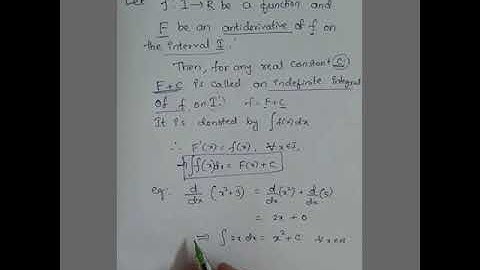 Let f: I→R be a function and
F be an antiderivative of f on
the interval I.
Then, for any real constant C,
F+C is called an indefinite integral
of f on I. F+C
It is denoted by ∫f(x)dx
∴ F'(x) = f(x), ∀ x∈I.
∫f(x)dx = F(x) + C
eg: d/dx (x²+3) = d/dx(x²) + d/dx(3)
= 2x + 0
⇒ ∫2x dx = x² + C ∀ x∈R